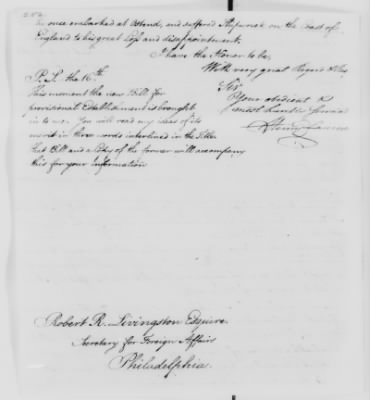 he once embarked at Ostend, and suffered Shipwreck on the Coast of
England to his great Loss and disappointment.
I have the Honor to be,
With very great Regard &
Sir
Your obedient &
most humble Servant
Henry Laurens
P. S. the 16th
This moment the new Bill for
provisional Establishment is brought
in to me. You will read my ideas of its
merit in three words interlined in the Title.
that Bill and a Copy of the former will accompany
this for your information
Robert R. Livingston Esquire.
Secretary for Foreign Affairs
Philadelphia.